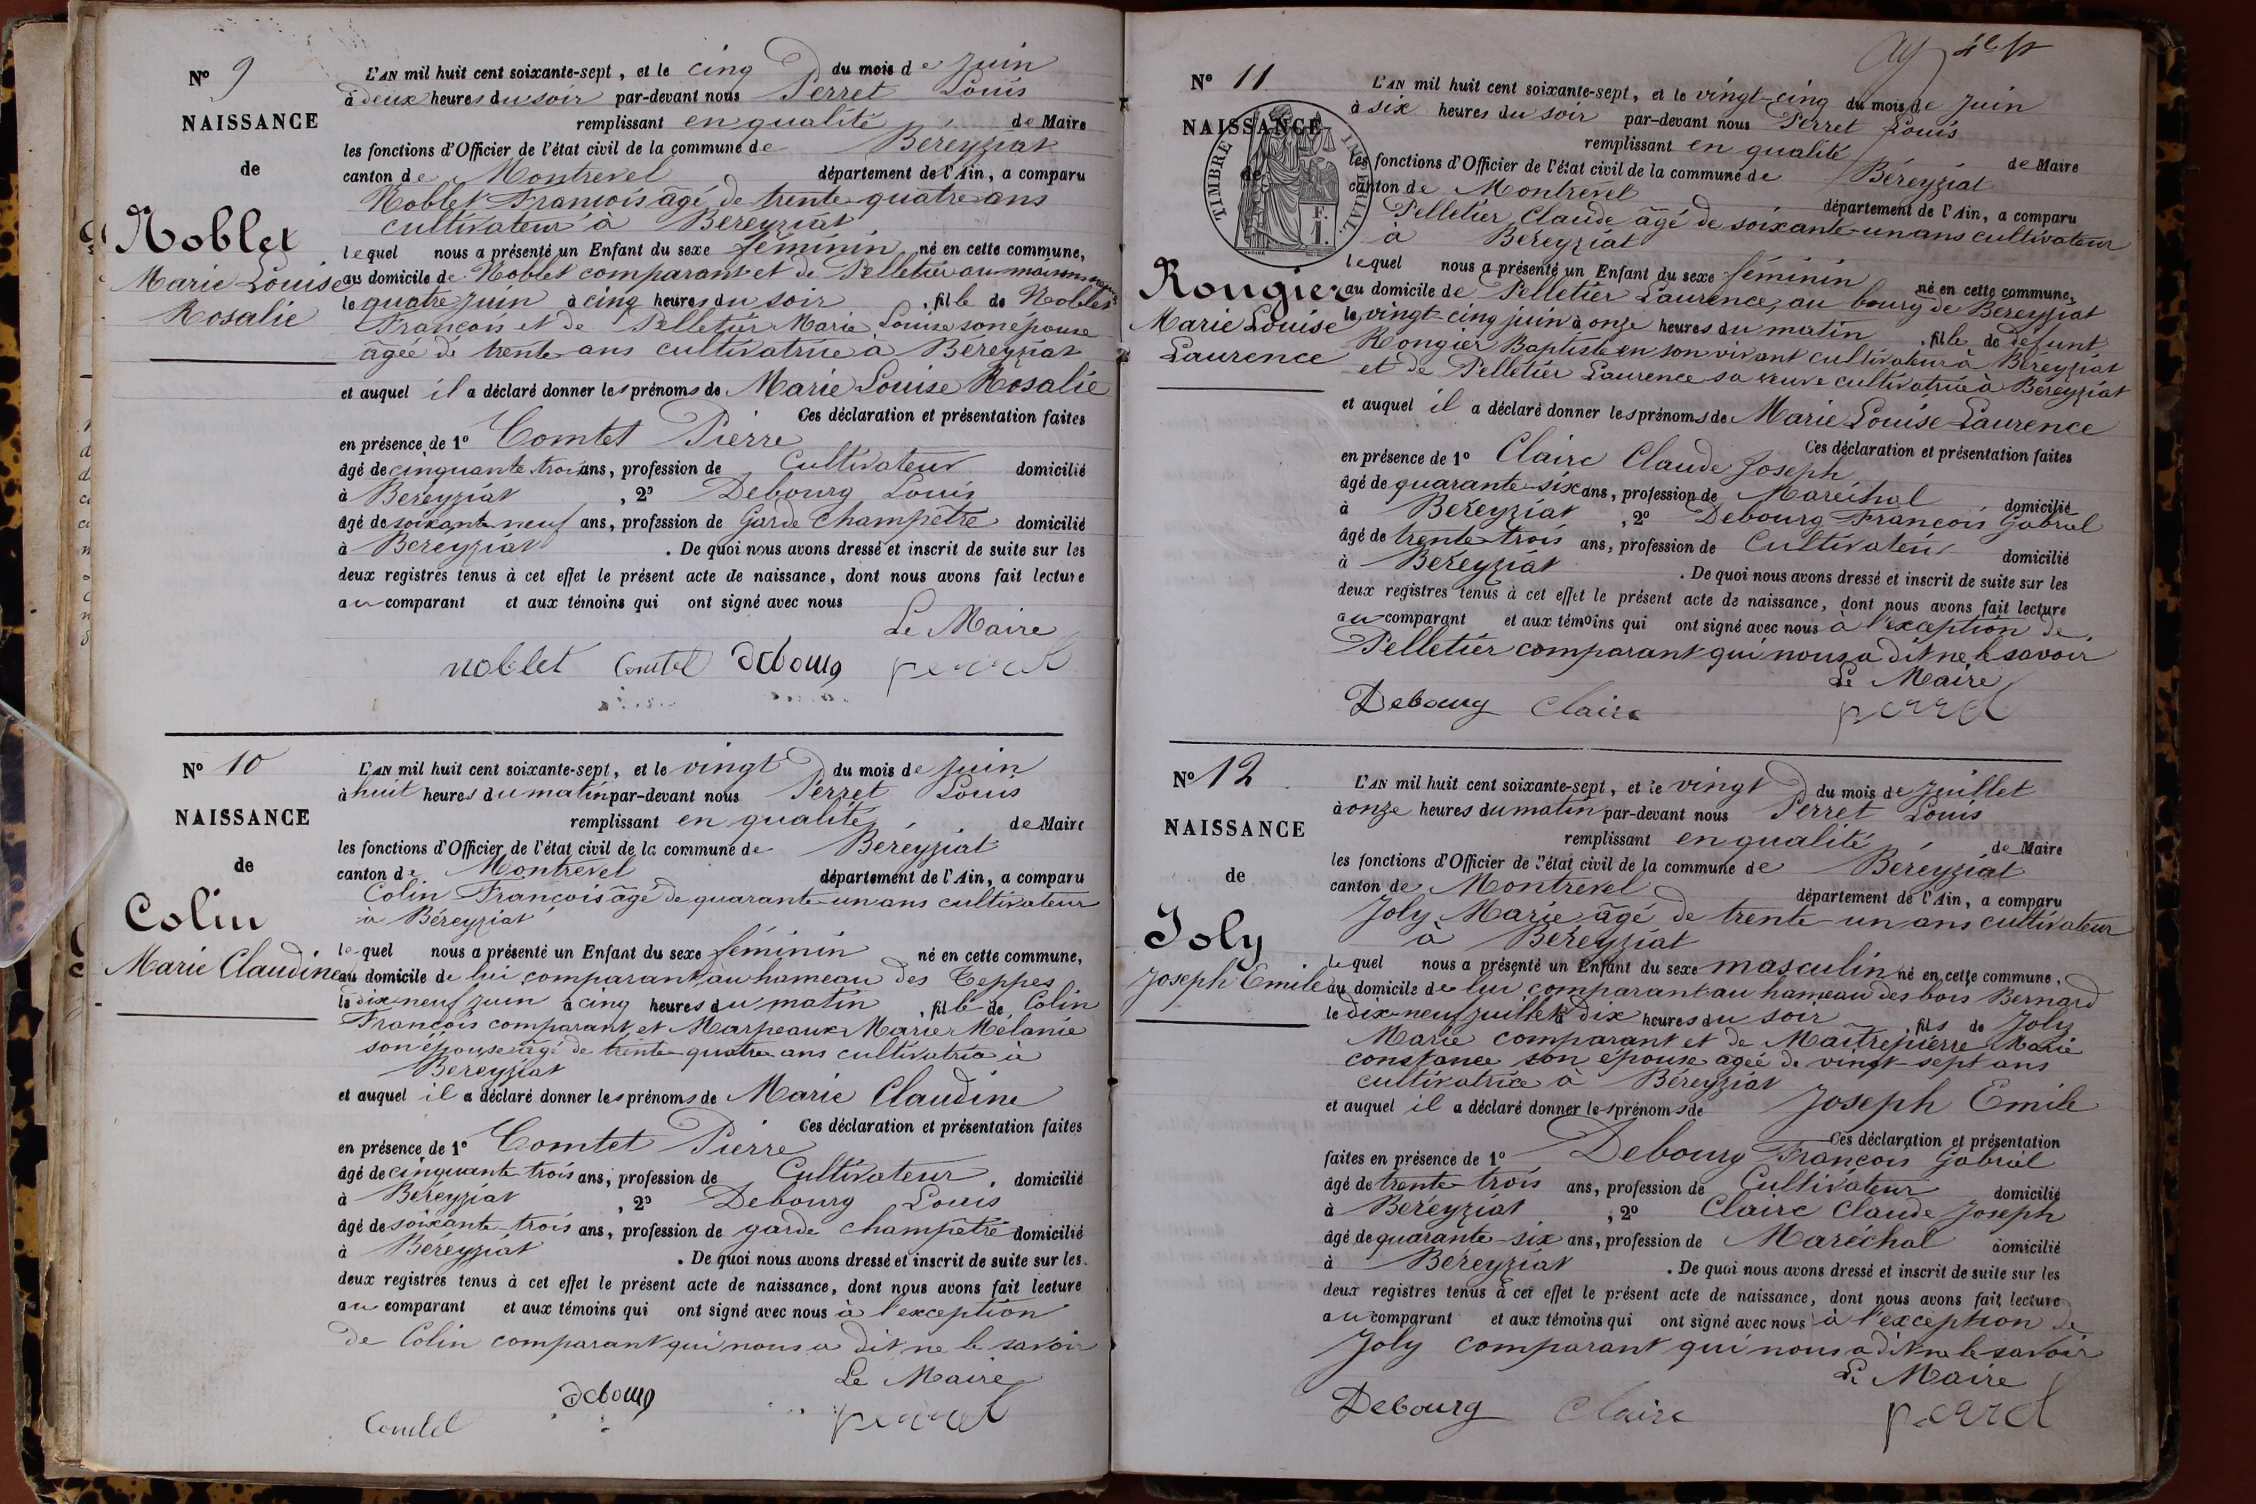 N° 9
NAISSANCE
de
Noblet
Marie Louise
Rosalie
L'AN mil huit cent soixante-sept, et le cinq du mois de Juin
à deux heures du soir par-devant nous Perret Louis
remplissant en qualité de Maire
les fonctions d'Officier de l'état civil de la commune de Béréyziat
canton de Montrevel département de l'Ain, a comparu
Noblet François âgé de trente quatre ans
cultivateur à Béréyziat
lequel nous a présenté un Enfant du sexe féminin né en cette commune,
au domicile de Noblet comparant et de Pelletier au
le quatre juin à cinq heures du soir, fille de Noblet
François et de Pelletier Marie Louise son épouse
âgée de trente ans cultivatrice à Béréyziat
et auquel il a déclaré donner les prénoms de Marie Louise Rosalie
Ces déclaration et présentation faites
en présence de 1° Comtet Pierre
âgé de cinquante trois ans, profession de Cultivateur domicilié
à Béréyziat, 2° Debourg Louis
âgé de soixante neuf ans, profession de Garde Champêtre domicilié
à Béréyziat. De quoi nous avons dressé et inscrit de suite sur les
deux registres tenus à cet effet le présent acte de naissance, dont nous avons fait lecture
au comparant et aux témoins qui ont signé avec nous
Le Maire
noblet Comtet Debourg perret
N° 10
NAISSANCE
de
Colin
Marie Claudine
L'AN mil huit cent soixante-sept, et le vingt du mois de Juin
à huit heures du matin par-devant nous Perret Louis
remplissant en qualité de Maire
les fonctions d'Officier de l'état civil de la commune de Béréyziat
canton de Montrevel département de l'Ain, a comparu
Colin François âgé de quarante-un ans cultivateur
à Béréyziat
lequel nous a présenté un Enfant du sexe féminin né en cette commune,
au domicile de lui comparant au hameau des Teppes
le dix neuf juin à cinq heures du matin, fille de Colin
François comparant et Marpeaux Marie Mélanie
son épouse âgé de trente quatre ans cultivatrice à
Béréyziat
et auquel il a déclaré donner les prénoms de Marie Claudine
Ces déclaration et présentation faites
en présence de 1° Comtet Pierre
âgé de cinquante trois ans, profession de Cultivateur, domicilié
à Béréyziat, 2° Debourg Louis
âgé de soixante-trois ans, profession de garde champêtre domicilié
à Béréyziat. De quoi nous avons dressé et inscrit de suite sur les
deux registres tenus à cet effet le présent acte de naissance, dont nous avons fait lecture
au comparant et aux témoins qui ont signé avec nous à l'exception
de Colin comparant qui nous a dit ne le savoir
Le Maire
Comtet Debourg perret
N° 11
TIMBRE IMPÉRIAL.
F.
1.
NAISSANCE
de
Rongier
Marie Louise
Laurence
L'AN mil huit cent soixante-sept, et le vingt-cinq du mois de Juin
à six heures du soir par-devant nous Perret Louis
remplissant en qualité de Maire
les fonctions d'Officier de l'état civil de la commune de Béréyziat
canton de Montrevel département de l'Ain, a comparu
Pelletier Claude âgé de soixante-un ans cultivateur
à Béréyziat
lequel nous a présenté un Enfant du sexe féminin né en cette commune,
au domicile de Pelletier Laurence, au bourg de Béréyziat
le vingt-cinq juin à onze heures du matin, fille de défunt
Rongier Baptiste en son vivant cultivateur à Béréyziat
et de Pelletier Laurence sa veuve cultivatrice à Béréyziat
et auquel il a déclaré donner les prénoms de Marie Louise Laurence
Ces déclaration et présentation faites
en présence de 1° Claire Claude Joseph
âgé de quarante-six ans, profession de Maréchal domicilié
à Béréyziat, 2° Debourg François Gabriel
âgé de trente-trois ans, profession de Cultivateur domicilié
à Béréyziat. De quoi nous avons dressé et inscrit de suite sur les
deux registres tenus à cet effet le présent acte de naissance, dont nous avons fait lecture
au comparant et aux témoins qui ont signé avec nous à l'exception de
Pelletier comparant qui nous a dit ne le savoir
Le Maire
Debourg Claire perret
N° 12
NAISSANCE
de
Joly
Joseph Emile
L'AN mil huit cent soixante-sept, et le vingt du mois de Juillet
à onze heures du matin par-devant nous Perret Louis
remplissant en qualité de Maire
les fonctions d'Officier de l'état civil de la commune de Béréyziat
canton de Montrevel département de l'Ain, a comparu
Joly Marie âgé de trente-un ans cultivateur
à Béréyziat
lequel nous a présenté un Enfant du sexe masculin né en cette commune,
au domicile de lui comparant au hameau des bois Bernard
le dix-neuf juillet à dix heures du soir, fils de Joly
Marie comparant et de Maitrepierre Marie
constance son épouse agée de vingt-sept ans
cultivatrice à Béréyziat
et auquel il a déclaré donner les prénoms de Joseph Emile
Ces déclaration et présentation
faites en présence de 1° Debourg François Gabriel
âgé de trente-trois ans, profession de Cultivateur domicilié
à Béréyziat; 2° Claire Claude Joseph
âgé de quarante-six ans, profession de Maréchal domicilié
à Béréyziat. De quoi nous avons dressé et inscrit de suite sur les
deux registres tenus à cet effet le présent acte de naissance, dont nous avons fait lecture
au comparant et aux témoins qui ont signé avec nous à l'exception de
Joly comparant qui nous a dit ne le savoir
Le Maire
Debourg Claire perret